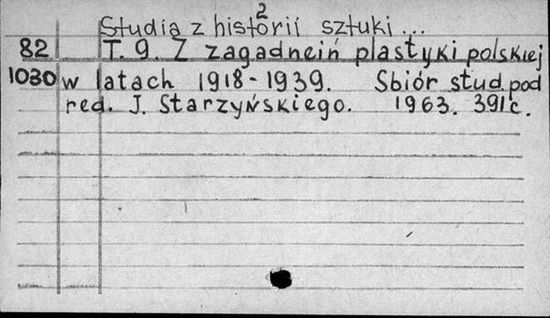 2
Studia z historii sztuki...
82 T. 9. Z zagadneiń plastyki polskiej
1030 w latach 1918-1939. Sbiór stud. pod
red. J. Starzyńskiego. 1963. 391 с.